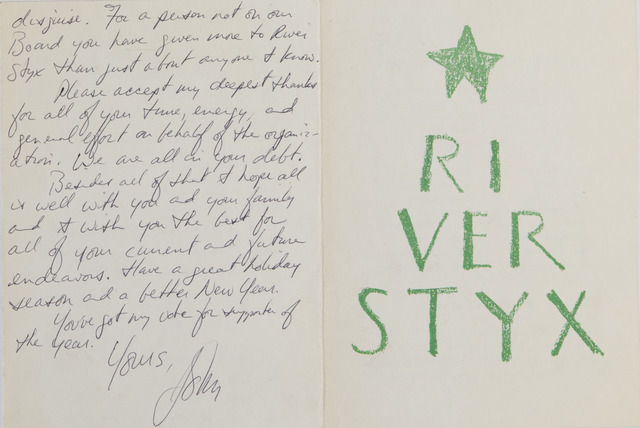 disguise. For a person not on our
Board you have given more to River
Styx than just about anyone I know.
Please accept my deepest thanks
for all of your time, energy, and
general effort on behalf of the organiz-
ation. We are all in your debt.
Besides all of that I hope all
is well with you and your family
and I wish you the best for
all of your current and future
endeavors. Have a great holiday
season and a better New Year.
You've got my vote for supporter of
the Year.
Yours,
John
RI
VER
STYX